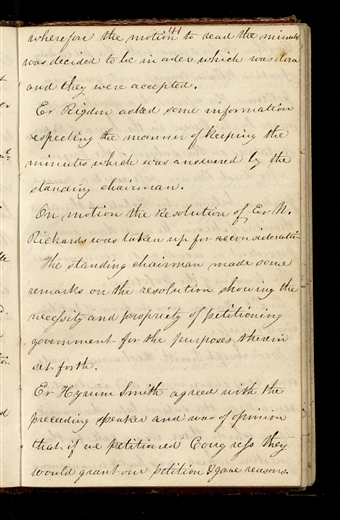 41
wherefore the motion to read the minutes
was decided to be in order which was done
and they were accepted.
Er Rigdon asked some information
respecting the manner of keeping the
minutes which was answered by the
standing chairman.
On motion the resolution of Er W.
Rickards was taken up for reconsideratin
The standing chairman made some
remarks on the resolution showing the
necessity and propriety of petitioning
government for the purposes therein
set forth.
Er Hyrum Smith agreed with the
preceding speaker and was of opinion
that if we petitioned Congress they
would grant our petition & gave reasons.